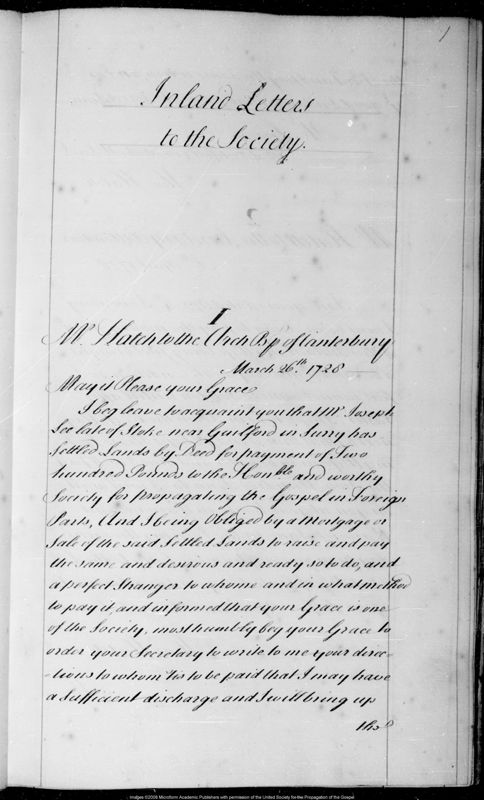 1
Inland Letters
to the Society.
I
Mr Hatch to the Arch Bp of Canterbury
March 26th. 1728
May it Please your Grace
I beg leave to acquaint you that Mr Joseph
Lee late of Stoke near Guilford in Surry has
Settled Lands by Deed for payment of Two
hundred Pounds to the Honble and worthy
Society for propagating the Gospel in Foreign
Parts, And I being Obliged by a Mortgage or
Sale of the said Settled Lands to raise and pay
the same and desirous and ready so to do, and
a perfect Stranger to whome and in what method
to pay it, and informed that your Grace is one
of the Society, most humbly beg your Grace to
order your Secretary to write to me your direc-
-tions to whom 'tis to be paid that I may have
a Sufficient discharge and I will bring up
Images ©2006 Microform Academic Publishers with permission of the United Society for the Propagation of the Gospel